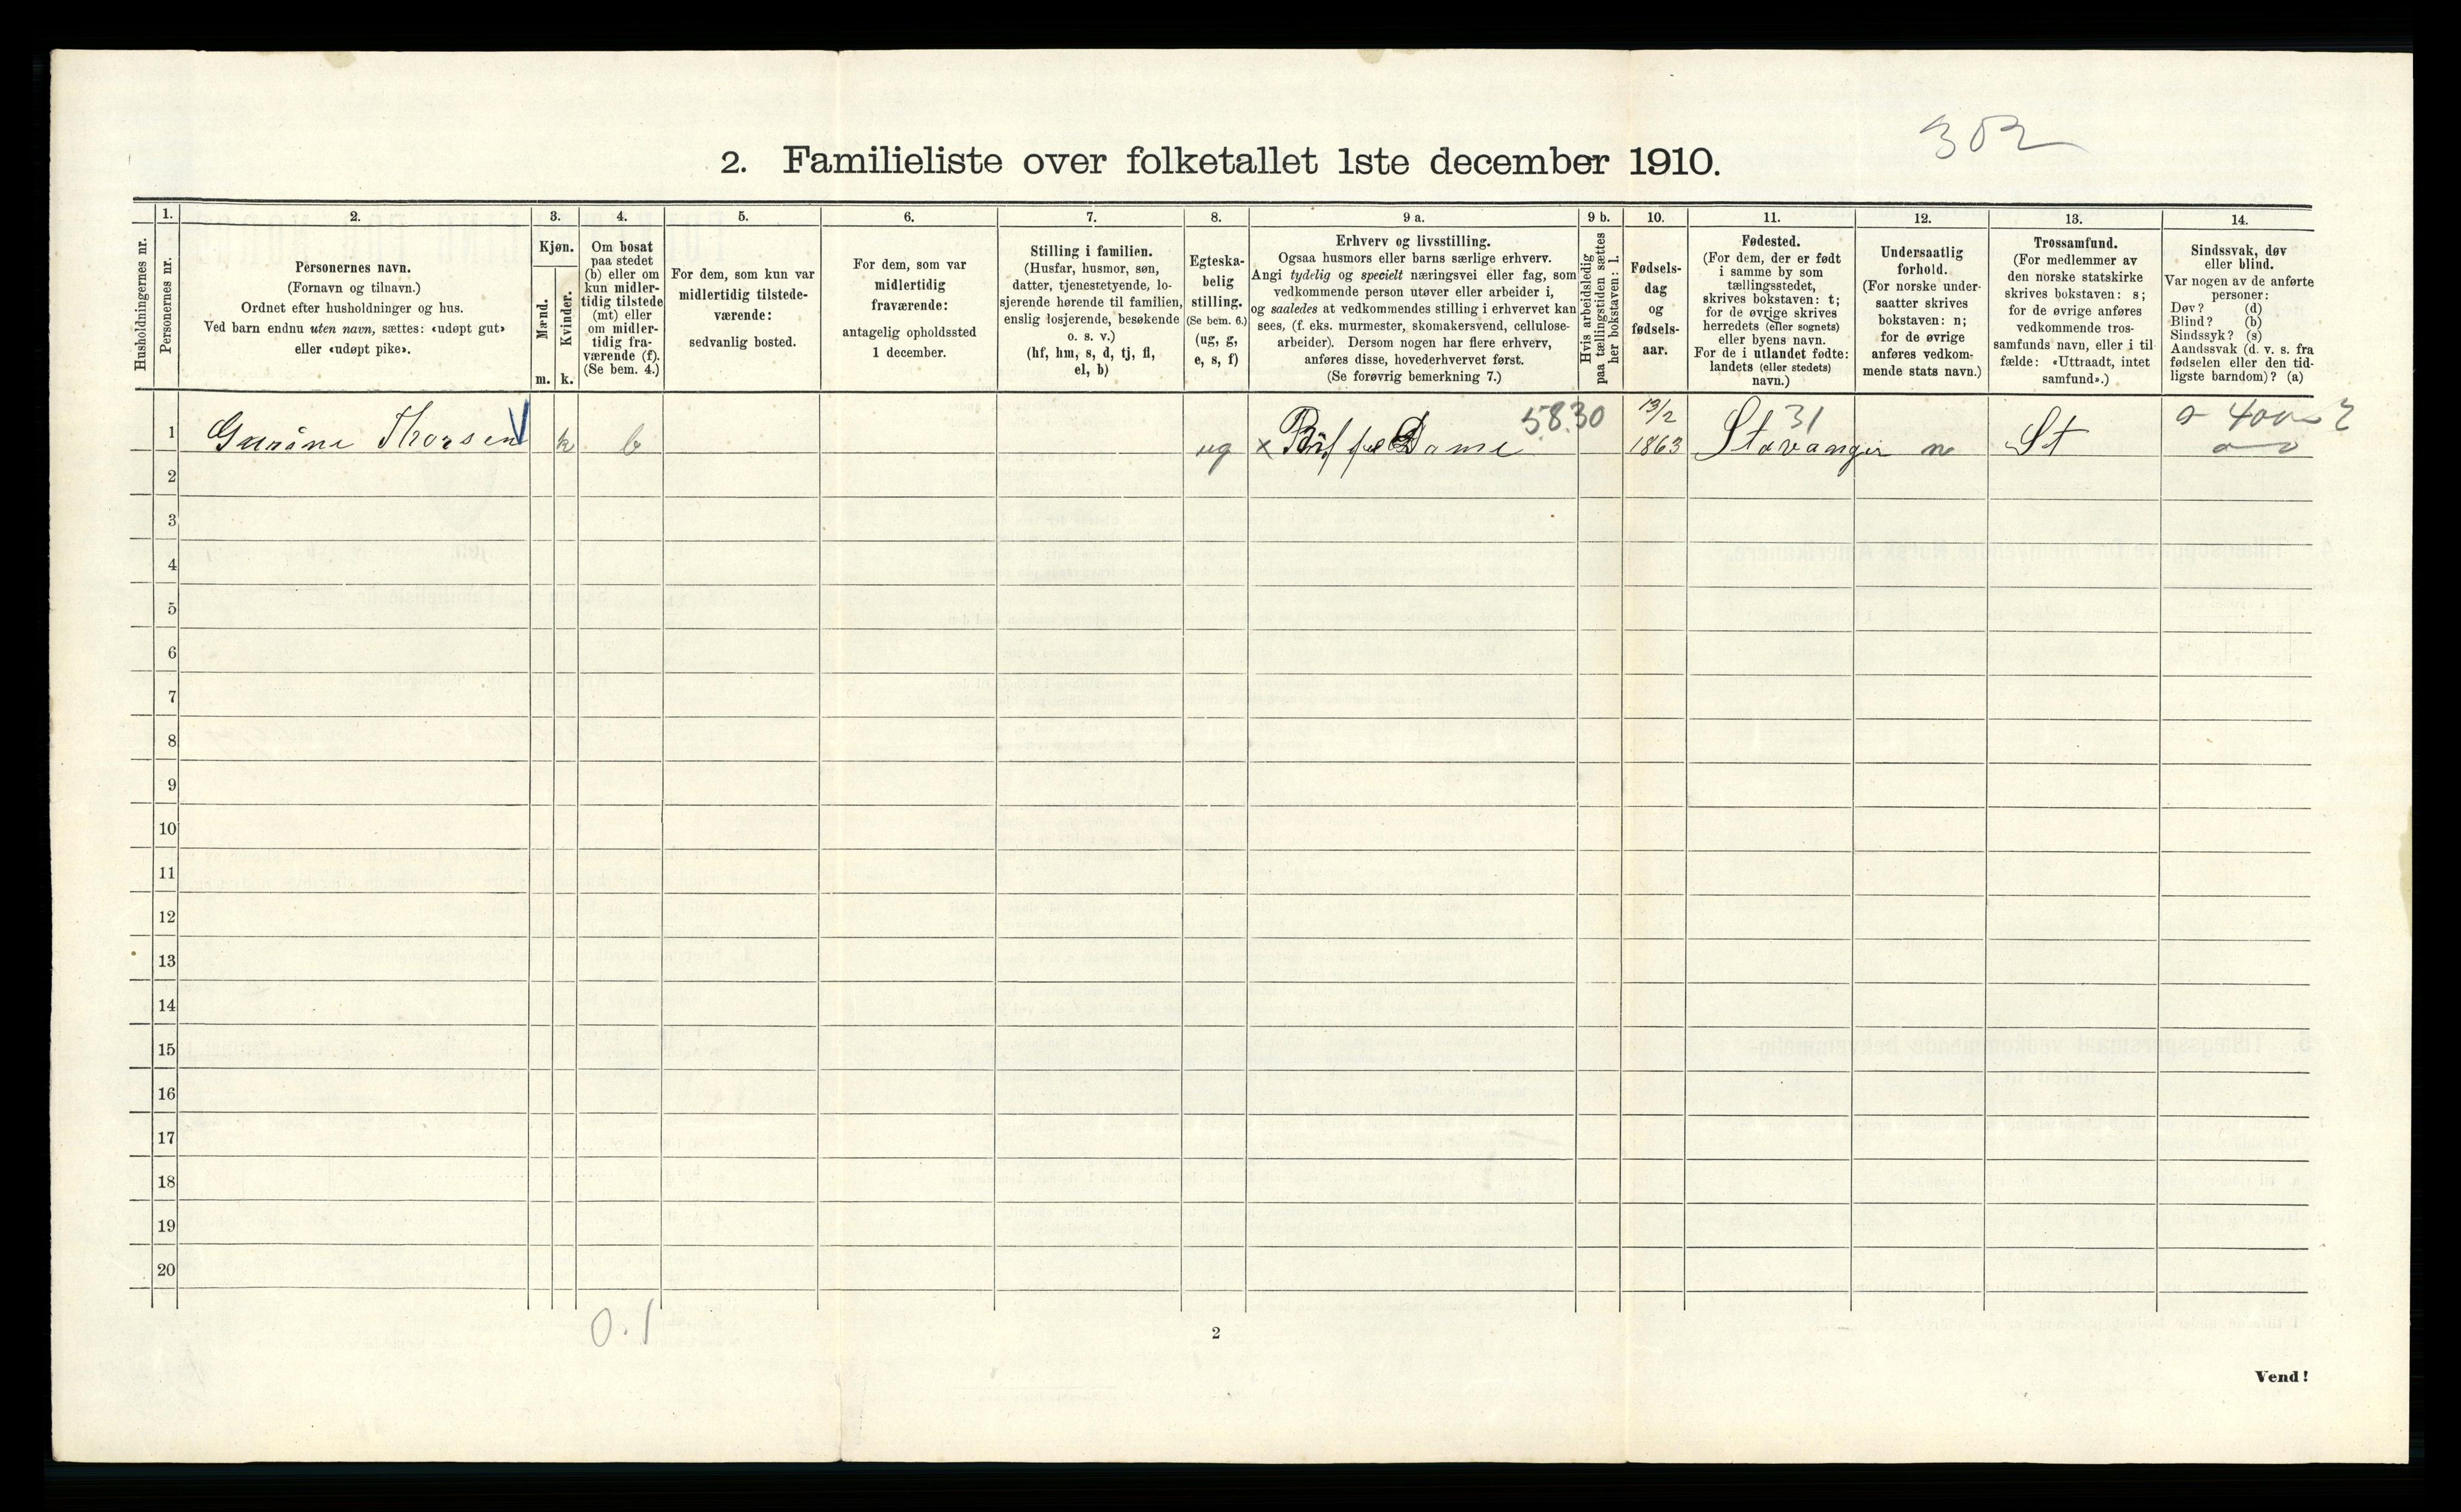 302
2. Familieliste over folketallet 1ste december 1910.
Husholdningernes nr.
1.
Personernes nr.
2.
Personernes navn.
(Fornavn og tilnavn.)
Ordnet efter husholdninger og hus.
Ved barn endnu uten navn, sættes: «udøpt gut»
eller «udøpt pike».
3.
Kjøn.
Mænd.
m.
Kvinder.
k.
4.
Om bosat
paa stedet
(b) eller om
kun midler-
tidig tilstede
(mt) eller
om midler-
tidig fra-
værende (f).
(Se bem. 4.)
5.
For dem, som kun var
midlertidig tilstede-
værende:
sedvanlig bosted.
6.
For dem, som var
midlertidig
fraværende:
antagelig opholdssted
1 december.
7.
Stilling i familien.
(Husfar, husmor, søn,
datter, tjenestetyende, lo-
sjerende hørende til familien,
enslig losjerende, besøkende
o. s. v.)
(hf, hm, s, d, tj, fl,
el, b)
8.
Egteska-
belig
stilling.
(Se bem. 6.)
(ug, g,
e, s, f)
9 a.
Erhverv og livsstilling.
Ogsaa husmors eller barns særlige erhverv.
Angi tydelig og specielt næringsvei eller fag, som
vedkommende person utøver eller arbeider i,
og saaledes at vedkommendes stilling i erhvervet kan
sees, (f. eks. murmester, skomakersvend, cellulose-
arbeider). Dersom nogen har flere erhverv,
anføres disse, hovederhvervet først.
(Se forøvrig bemerkning 7.)
9 b.
Hvis arbeidsledig
paa tællingstiden sættes
her bokstaven: l.
10.
Fødsels-
dag
og
fødsels-
aar.
11.
Fødested.
(For dem, der er født
i samme by som
tællingsstedet,
skrives bokstaven: t;
for de øvrige skrives
herredets (eller sognets)
eller byens navn.
For de i utlandet fødte:
landets (eller stedets)
navn.)
12.
Undersaatlig
forhold.
(For norske under-
saatter skrives
bokstaven: n;
for de øvrige
anføres vedkom-
mende stats navn.)
13.
Trossamfund.
(For medlemmer av
den norske statskirke
skrives bokstaven: s;
for de øvrige anføres
vedkommende tros-
samfunds navn, eller i til-
fælde: «Uttraadt, intet
samfund».)
14.
Sindssvak, døv
eller blind.
Var nogen av de anførte
personer:
Døv? (d)
Blind? (b)
Sindssyk? (s)
Aandssvak (d. v. s. fra
fødselen eller den tid-
ligste barndom)? (a)
58.30 13/2 31
1 Thorsen k b ug x Dame 1863 Stavanger n St
2
3
4
5
6
7
8
9
10
11
12
13
14
15
16
17
18
19
20
0.1
2
Vend!